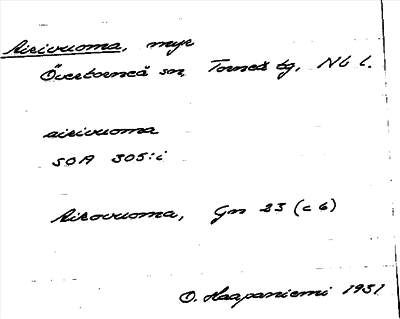 Airivuoma, myr
Övertorneå sn, Torneå tg, Nb l.
airivuoma
SOA 305:i
Airovuoma, Gn 23 (c 6)
O. Haapaniemi 1931